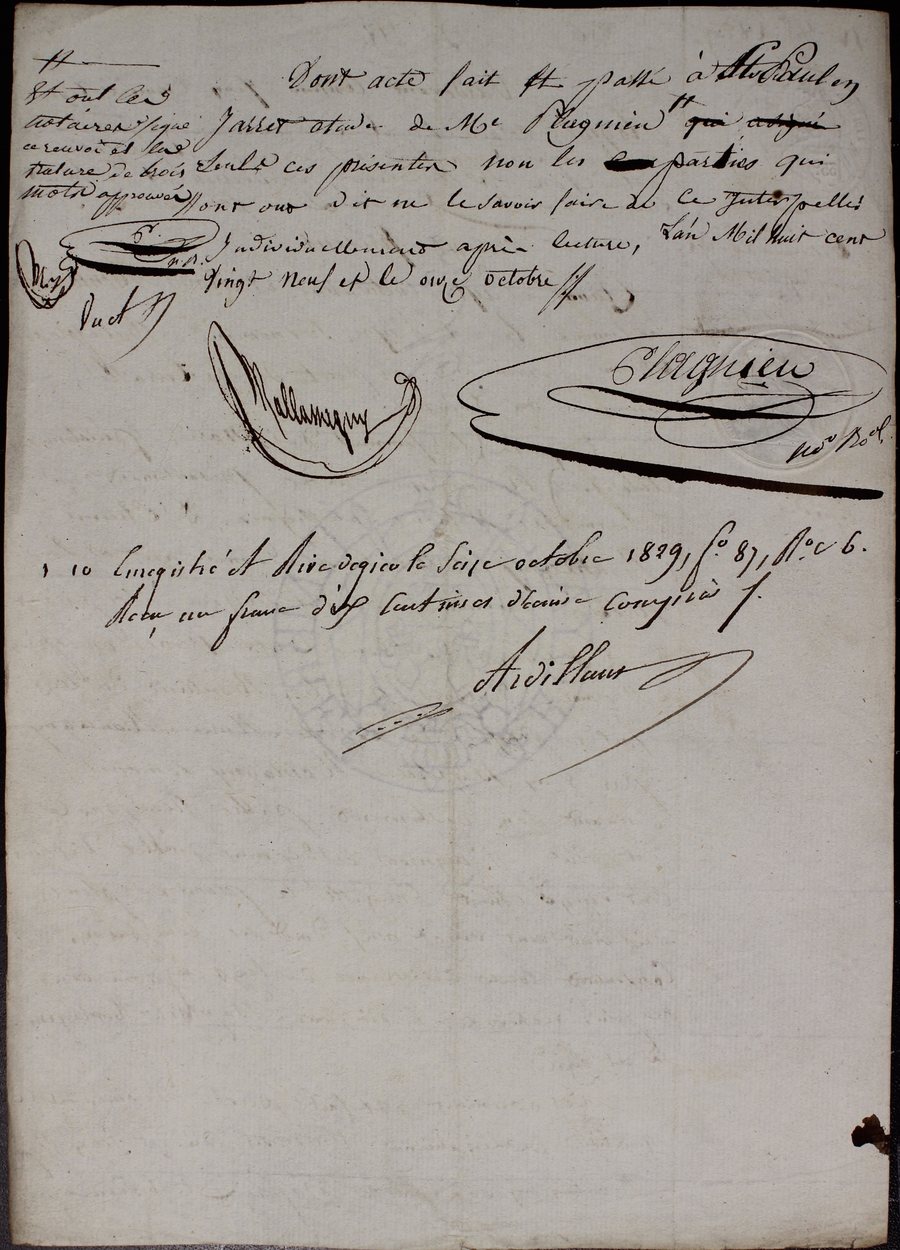 Dont acte fait et passé à St Paul en
Jarret étude de Me Plagnieu # qui a signé
seuls ces présentes non les parties qui
ont dit ne le savoir faire de ce Interpellés
Individuellement après lecture, L'an Mil huit cent
Vingt Neuf et le onze octobre
#
Et ont les
notaires signé
ce renvoi et la
rature de trois
mots approuvés
P. n.r.
Duct
Mallamegny
Plagnieu
no.re Roal
1 10 Enregistré et Rive de gier le Seize octobre 1829, fo. 87, Ro. c 6.
Reçu un franc dix centimes décime compris
Ardillaux